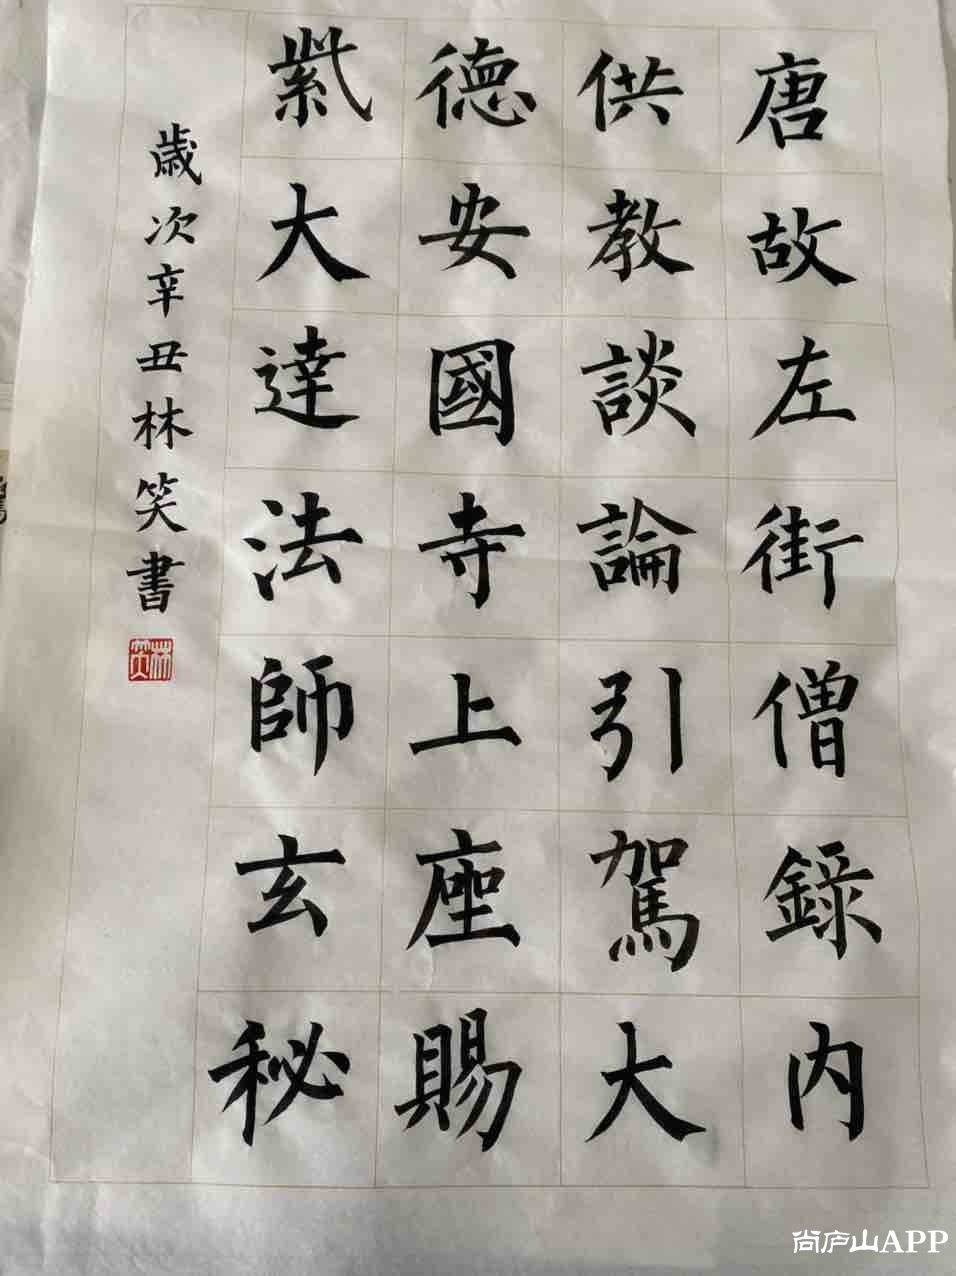 唐故左街僧録内
供教談論引駕大
德安國寺上座賜
紫大達法師玄秘
歲次辛丑林笑書
林笑
尚庐山APP